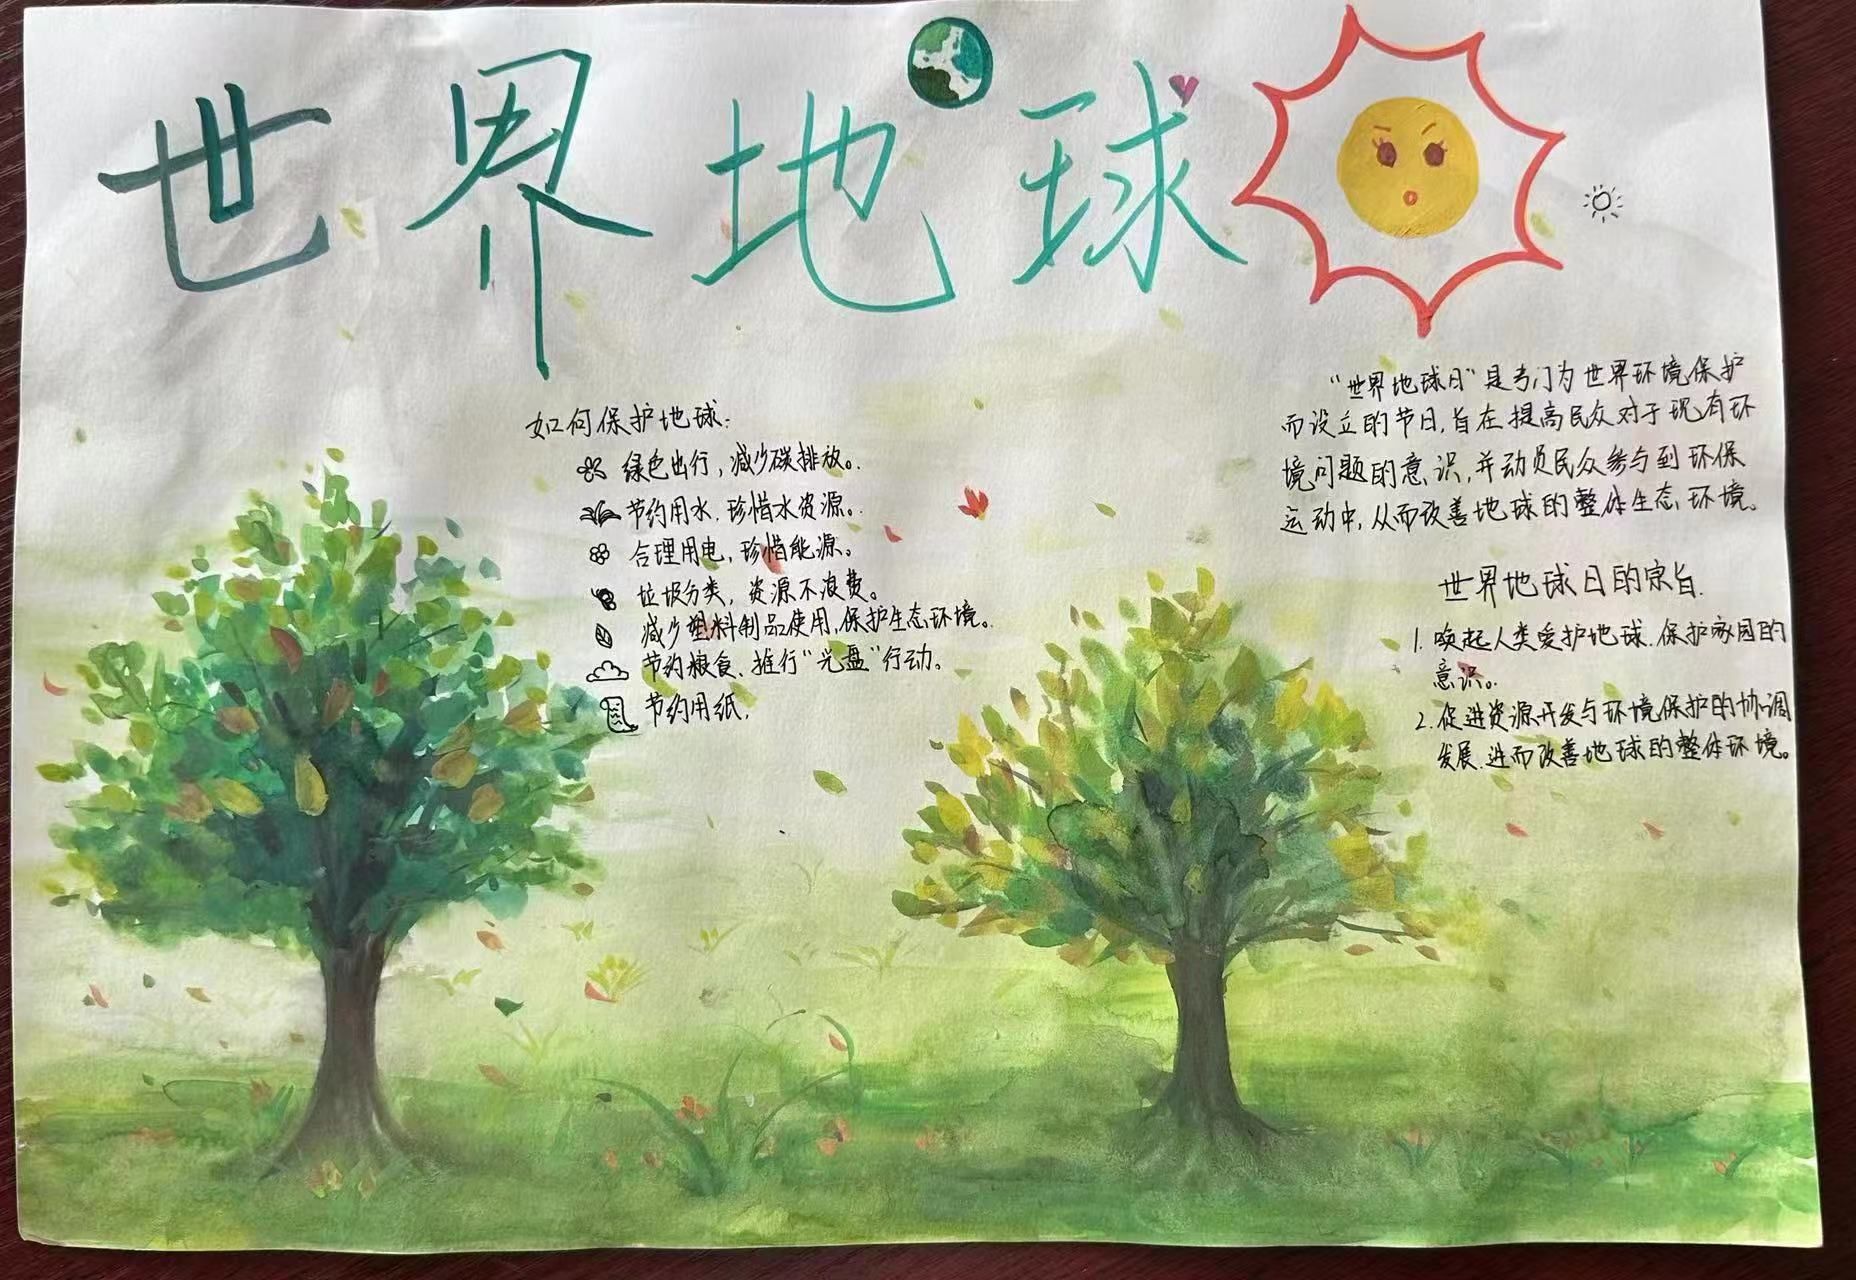 世界地球
如何保护地球:
绿色出行,减少碳排放。
节约用水.珍惜水资源。
合理用电,珍惜能源。
垃圾分类,资源不浪费。
减少塑料制品使用,保护生态环境。
节约粮食、推行“光盘”行动。
节约用纸.
“世界地球日”是专门为世界环境保护
而设立的节日,旨在提高民众对于现有环
境问题的意识,并动员民众参与到环保
运动中,从而改善地球的整体生态环境。
世界地球日的宗旨.
1.唤起人类爱护地球.保护家园的
意识。
2.促进资源开发与环境保护的协调
发展.进而改善地球的整体环境。